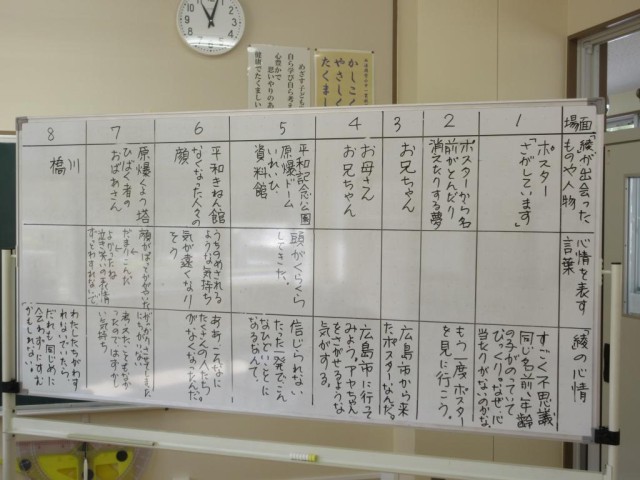 めざす子ども
自ら学び自ら考え
心豊かで
思いやりのあ
健康でたくましい
かしこく
やさしく
たくまし
場面
「綾が出会った
ものや人物
心情を表す
言葉
「綾」の心情
1
ポスター
「さがしています」
すごく不思議、
同じ名前、年齢
の子がのっていて
びっくり。なぜ、心
当たりがないのかな。
2
ポスターから名
前がとんだり
消えたりする夢
もう一度ポスター
を見に行こう。
3
お兄ちゃん
広島市から来
たポスターなんだ。
4
お母さん
お兄ちゃん
広島市に行って
みよう。アヤちゃん
をさがせるような
気がする。
5
平和記念公園
原爆ドーム
いれいひ、
資料館
頭がくらくら
してきた。
信じられない
たった一発でこん
なひどいことに
なるなんて。
6
平和きねん館
なくなった人々の
顔
うちのめされる
ような気持ち
気が遠くなり
そう
ああ、こんなに
たくさんの人たち
がなくなったんだ。
7
原爆くよう塔
ひばく者の
おばあさん
顔がぱっとかがやいた
だまりこんだ
よかったねえ
泣き笑いの表情
ずっとわすれないで
気持ち
8
川
橋
わたしたちがわす
れないでいたら、
だれも同じめに
会わずにすむ
かもしれない。